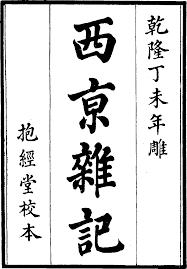 乾隆丁未年雕
西京雜記
抱經堂校本